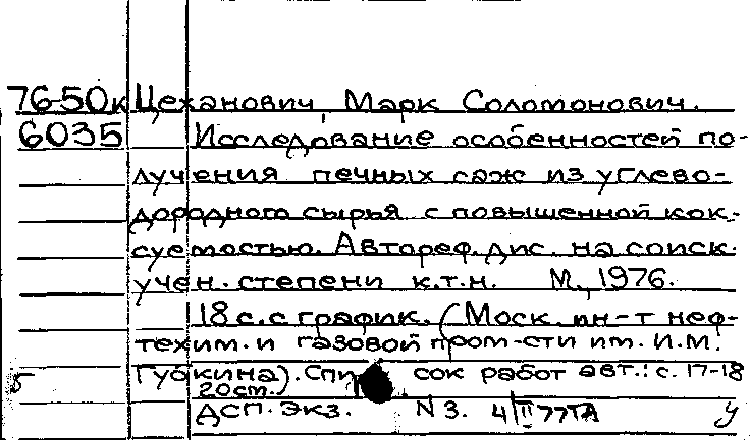 76-50к Цеханович, Марк Соломонович.
6035 Исследование особенностей по-
лучения печных саж из углево-
дородного сырья с повышенной кок-
суемостью. Автореф. дис. на соиск.
учен. степени к.т.н. М., 1976.
18 с. с график. (Моск. ин-т неф-
техим. и газовой пром-сти им. И.М.
Губкина). Список работ авт.: с. 17-18
20ст.
ДСП. Экз. N 3. 4/II 77ТА У